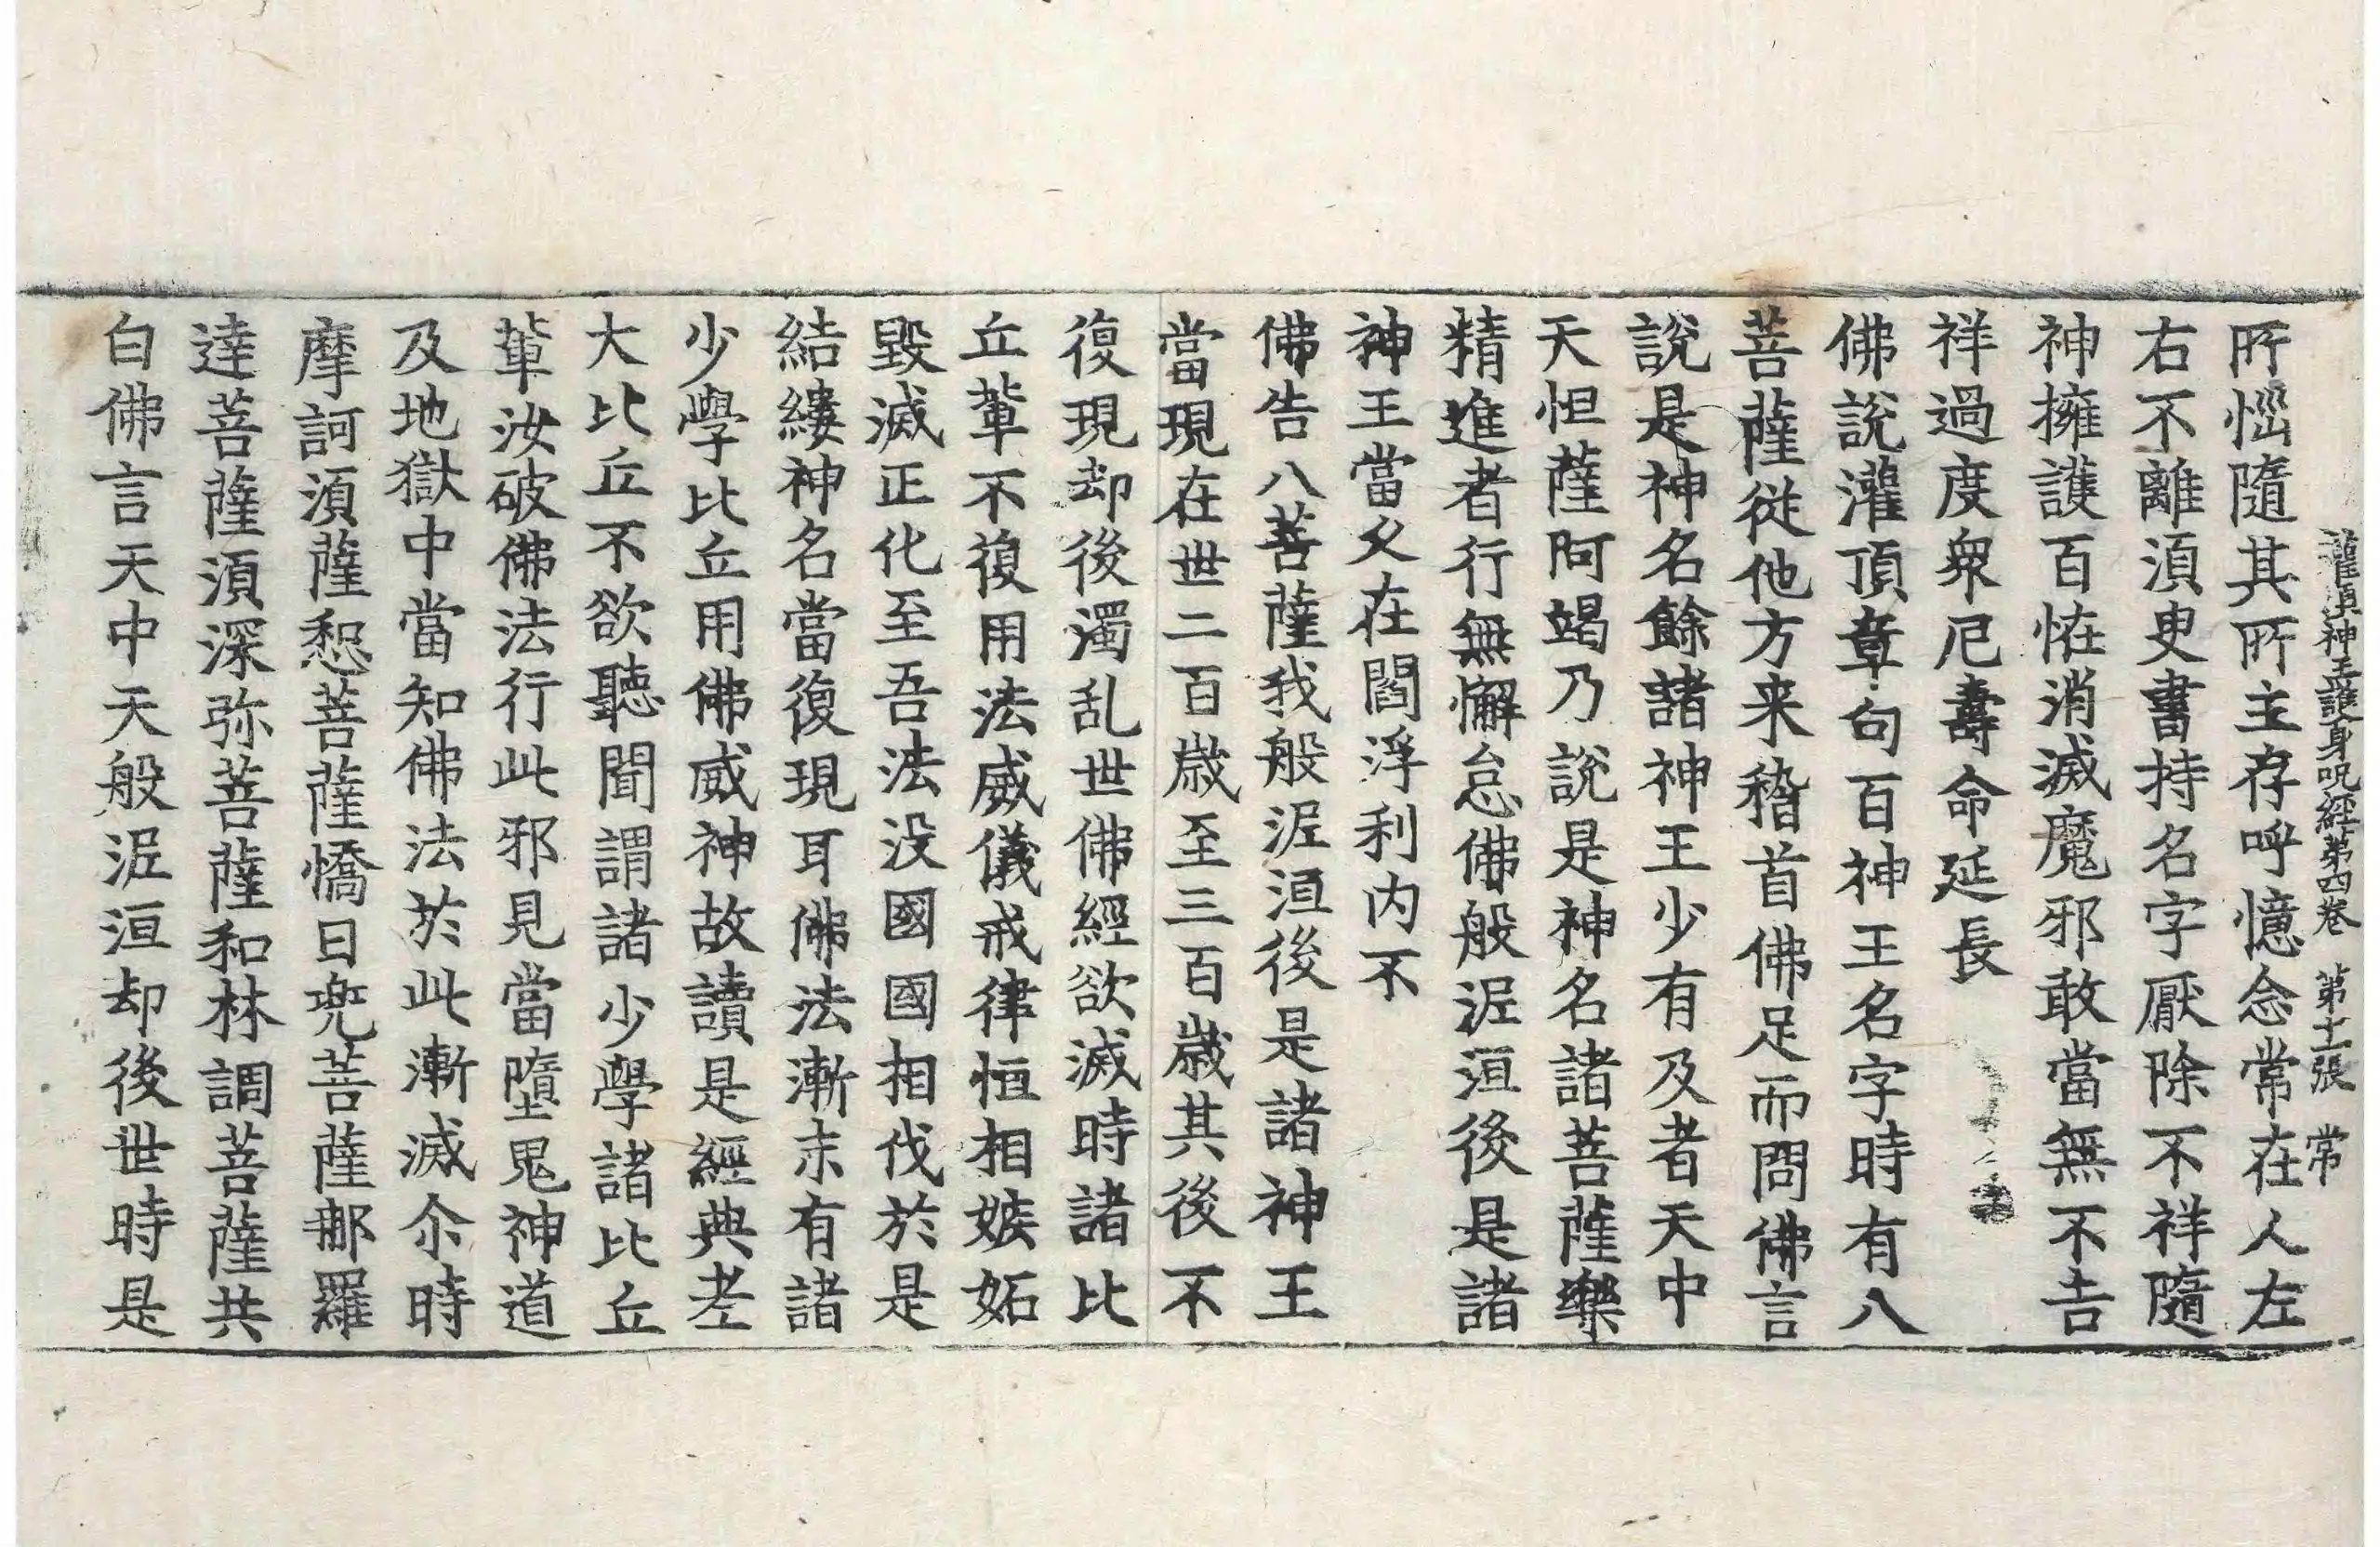 灌頂神王護身呪經第四卷 第十一張 常
所惱隨其所主存呼憶念常在人左
右不離湏臾書持名字厭除不祥隨
神擁護百恠消滅魔邪敢當無不吉
祥過度衆厄壽命延長
佛說灌頂章句百神王名字時有八
菩薩從他方来稽首佛足而問佛言
說是神名餘諸神王少有及者天中
天怛薩阿竭乃說是神名諸菩薩樂
精進者行無懈怠佛般泥洹後是諸
神王當久在閻浮利内不
佛告八菩薩我般泥洹後是諸神王
當現在世二百歲至三百歲其後不
復現却後濁乱世佛經欲滅時諸比
丘輩不復用法威儀戒律恒相嫉妬
毀滅正化至吾法没國國相伐於是
結縷神名當復現耳佛法漸末有諸
少學比丘用佛威神故讀是經典老
大比丘不欲聽聞謂諸少學諸比丘
輩汝破佛法行此邪見當墮鬼神道
及地獄中當知佛法於此漸滅尒時
摩訶湏薩惒菩薩憍日兜菩薩那羅
達菩薩湏深弥菩薩和林調菩薩共
白佛言天中天般泥洹却後世時是